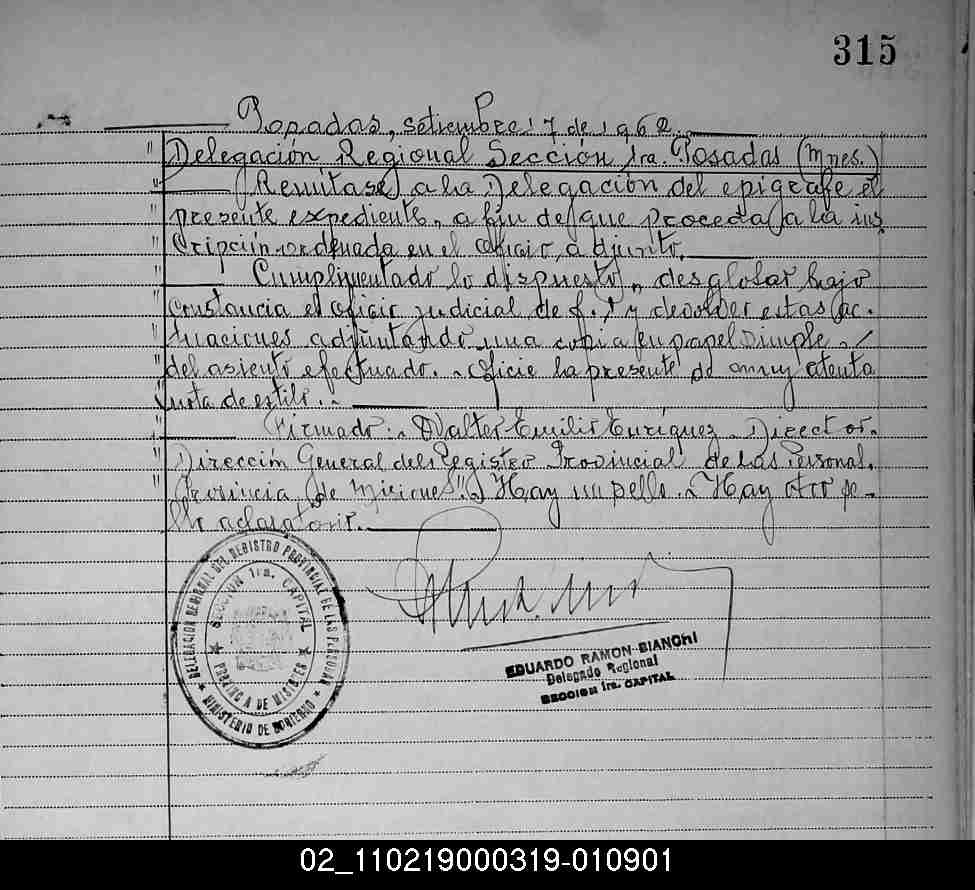 315
Posadas, setiembre 17 de 1962.
" Delegación Regional Sección 1ra. Posadas (Mnes.)
" Remítase a la Delegación del epigrafe el
" presente expediente, a fin de que proceda a la ins
" cripción ordenada en el oficio adjunto.
" Cumplimentado lo dispuesto, desglosar bajo
" constancia el oficio judicial de f. 1 y devolver estas ac-
" tuaciones adjuntando una copia en papel simple
" del asiento efectuado. Oficie la presente de muy atenta
" nota de estilo.
" Firmado: Walter Emilio Enríquez. Director.
" Dirección General del Registro Provincial de las Personas.
" Provincia de Misiones". Hay un sello. Hay otro se-
llo aclaratorio.
DELEGACION REGIONAL DEL REGISTRO PROVINCIAL DE LAS PERSONAS
SECCION 1ra. CAPITAL
PROVINCIA DE MISIONES
MINISTERIO DE GOBIERNO
EDUARDO RAMON BIANCHI
Delegado Regional
SECCION 1ra. CAPITAL
02_110219000319-010901